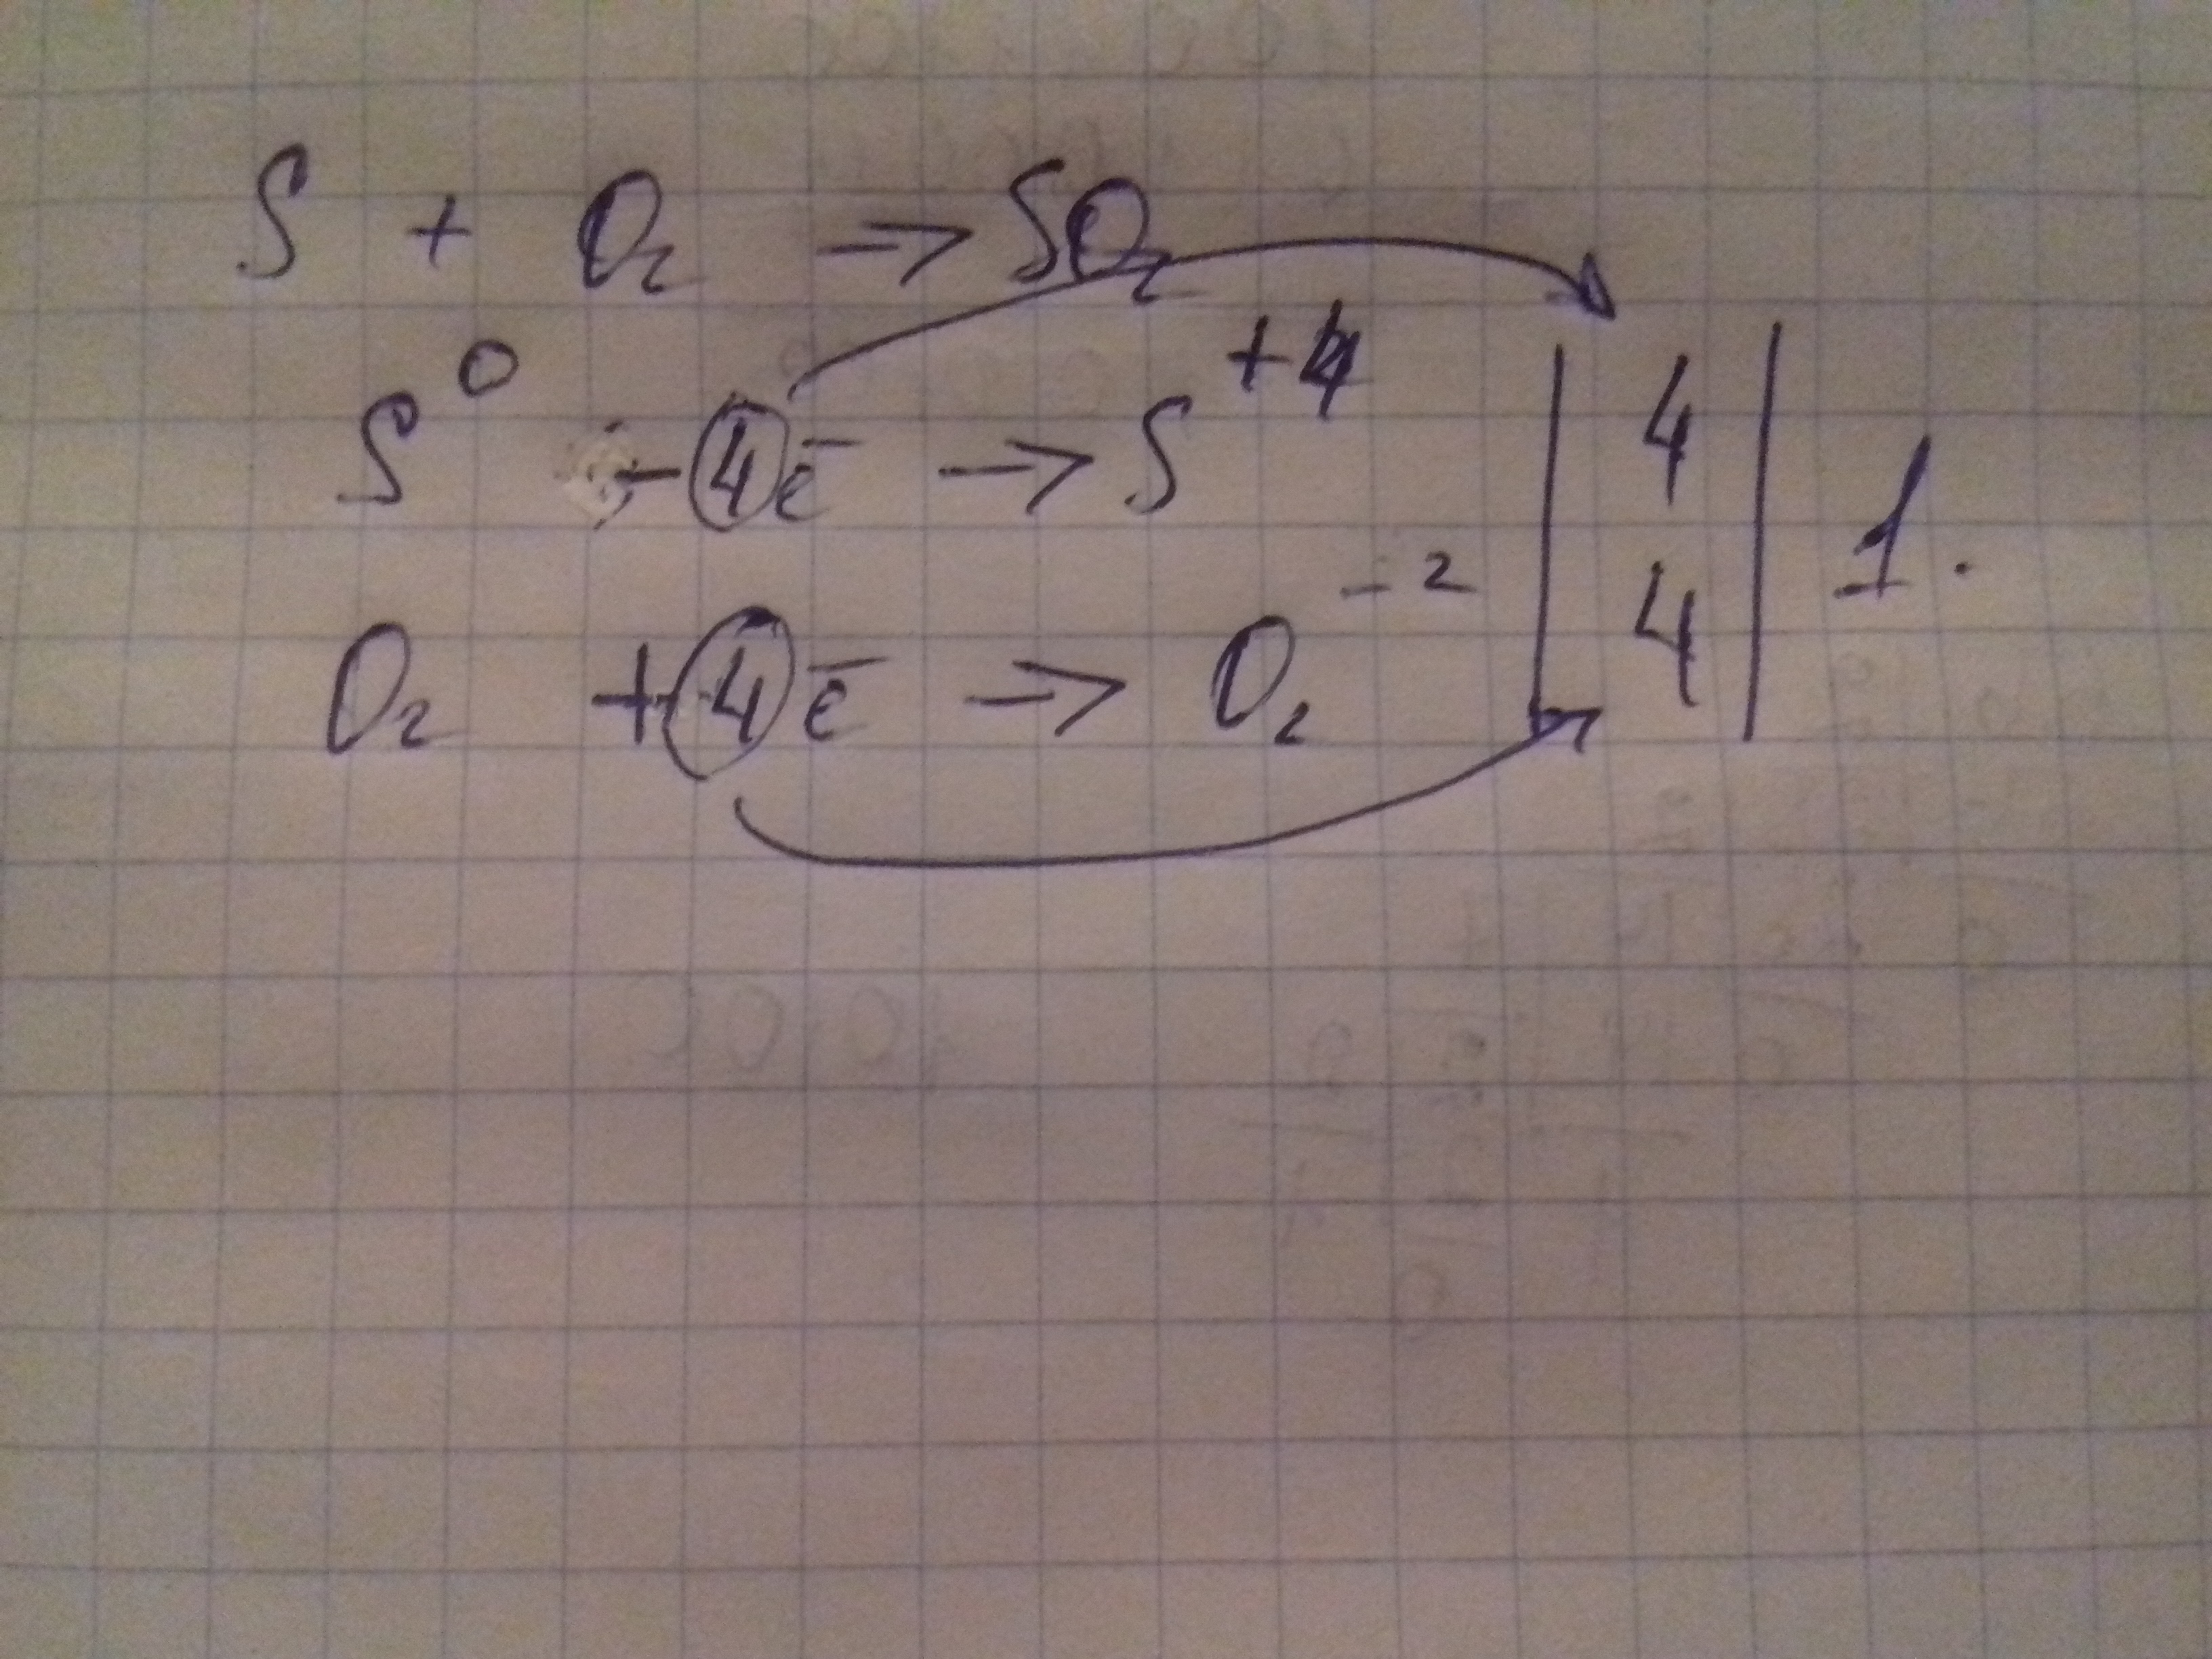 S + O₂ → SO₂
S⁰ - 4e̅ → S⁺⁴ | 4 | 1.
O₂ + 4e̅ → O₂⁻² | 4 |